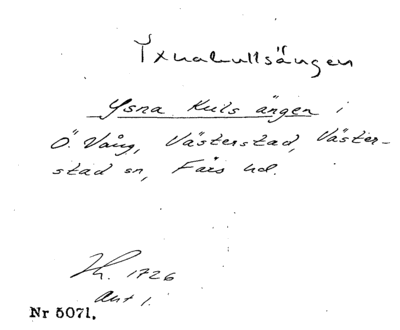 Yxnakullsängen
Ysna Kuls ängen i
Ö. Vång, Västerstad, Väster-
stad sn, Färs hd.
Lh. 1726
Akt 1.
Nr 5071.